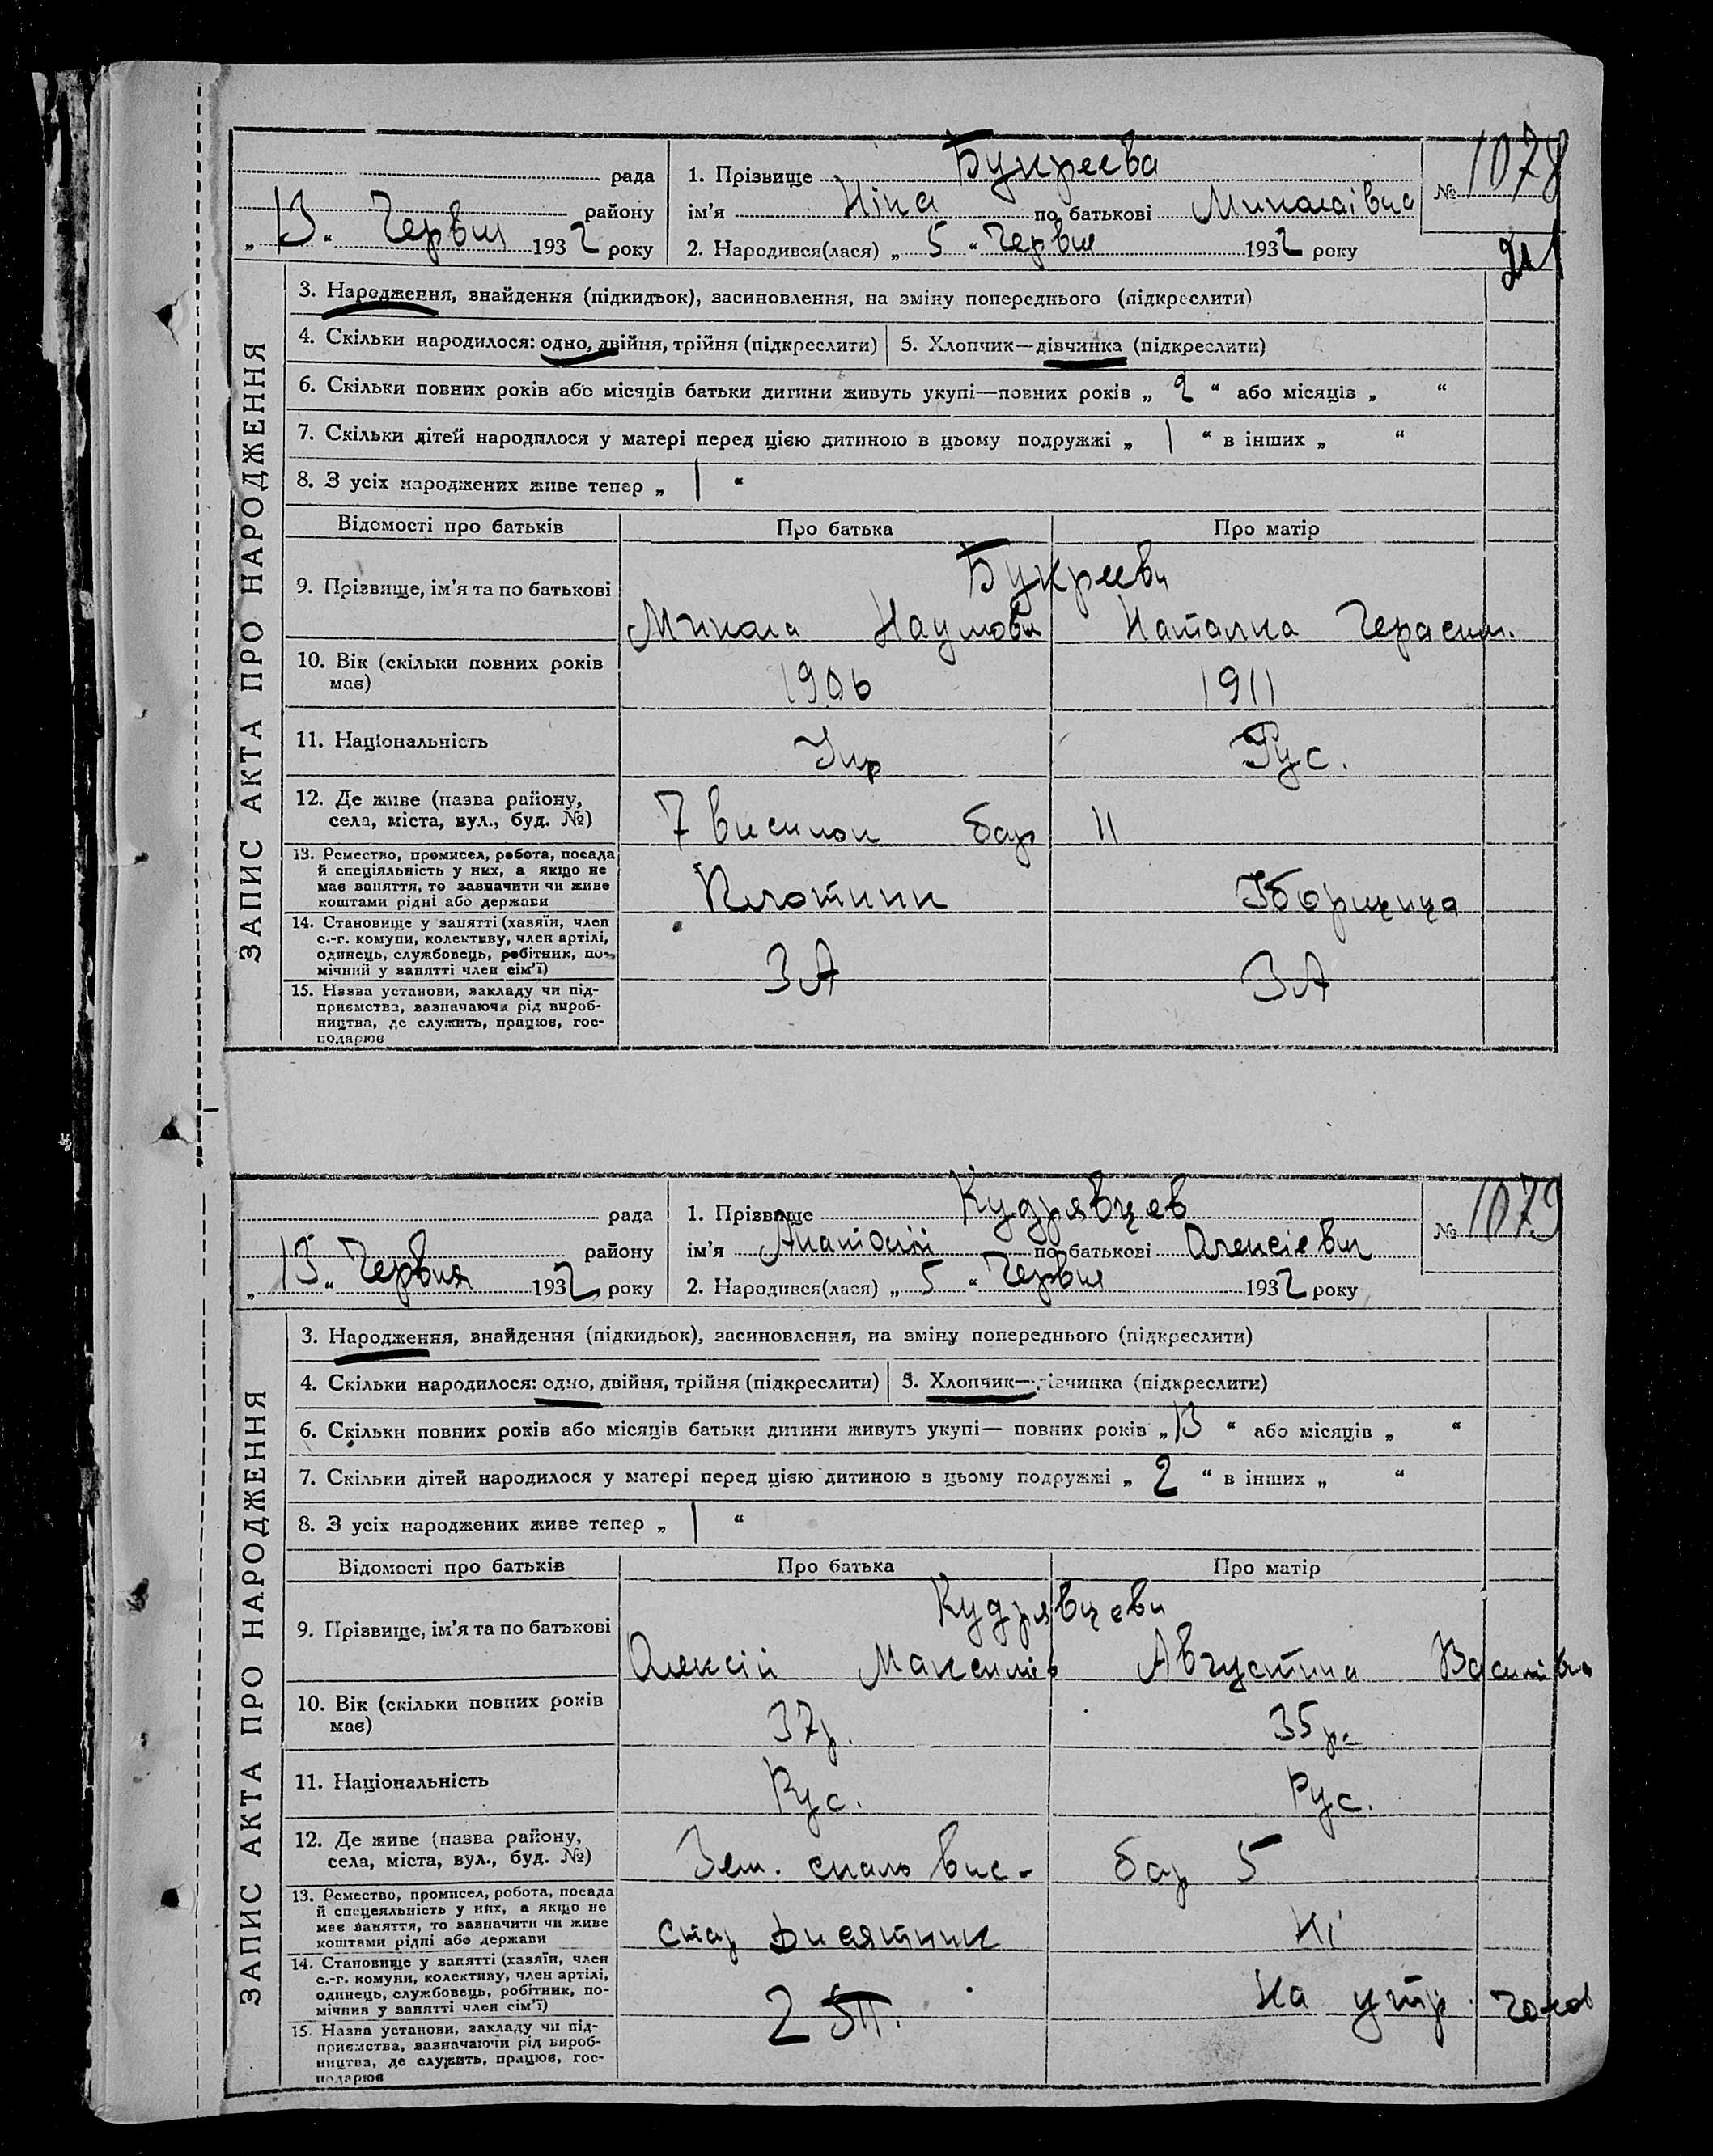 рада
району
„ 13 “ Червня 1932 року
1. Прізвище Букреева
ім’я Ніна по батькові Миколаівна
2. Народився(лася) „ 5 “ Червня 1932 року
№ 1078
ЗАПИС АКТА ПРО НАРОДЖЕННЯ
3. Народження, знайдення (підкидьок), засиновлення, на зміну попереднього (підкреслити)
4. Скільки народилося: одно, двійня, трійня (підкреслити)
5. Хлопчик—дівчинка (підкреслити)
6. Скільки повних років або місяців батьки дитини живуть укупі—повних років „ 2 “ або місяців „ “
7. Скільки дітей народилося у матері перед цією дитиною в цьому подружжі „ 1 “ в інших „ “
8. З усіх народжених живе тепер „ 1 “
Відомості про батьків Про батька Про матір
Букрееви
9. Прізвище, ім’я та по батькові Микола Наумови Наталка Герасим.
10. Вік (скільки повних років має) 1906 1911
11. Національність Укр Рус.
12. Де живе (назва району,
села, міста, вул., буд. №) 7 висилок бар 11
13. Ремество, промисел, робота, посада
й спеціяльність у них, а якщо не
має заняття, то зазначити чи живе
коштами рідні або держави
Плотник Уборщица
14. Становище у занятті (хазяїн, член
с.-г. комуни, колективу, член артілі,
одинець, службовець, робітник, по-
мічний у занятті член сім’ї)
ЗА ЗА
15. Назва установи, закладу чи під-
приємства, зазначаючи рід вироб-
ництва, де служить, працює, гос-
подарює
рада
району
„ 13 “ Червня 1932 року
1. Прізвище Кудрявцев
ім’я Анатолій по батькові Олексієвич
2. Народився(лася) „ 5 “ Червня 1932 року
№ 1079
ЗАПИС АКТА ПРО НАРОДЖЕННЯ
3. Народження, знайдення (підкидьок), засиновлення, на зміну попереднього (підкреслити)
4. Скільки народилося: одно, двійня, трійня (підкреслити)
5. Хлопчик—дівчинка (підкреслити)
6. Скільки повних років або місяців батьки дитини живуть укупі— повних років „ 13 “ або місяців „ “
7. Скільки дітей народилося у матері перед цією дитиною в цьому подружжі „ 2 “ в інших „ “
8. З усіх народжених живе тепер „ 1 “
Відомості про батьків Про батька Про матір
Кудрявцеви
9. Прізвище, ім’я та по батькові Олексій Максимів Августина Василівна
10. Вік (скільки повних років має) 37р. 35р.
11. Національність Рус. Рус.
12. Де живе (назва району,
села, міста, вул., буд. №) Зем. вис- бар 5
13. Ремество, промисел, робота, посада
й спецеяльність у них, а якщо не
має заняття, то зазначити чи живе
коштами рідні або держави
стар Дисятник Ні
14. Становище у занятті (хазяїн, член
с.-г. комуни, колективу, член артілі,
одинець, службовець, робітник, по-
мічнив у занятті член сім’ї)
На утр. чолов
15. Назва установи, закладу чи під-
приємства, зазначаючи рід вироб-
ництва, де служить, працює, гос-
подарює